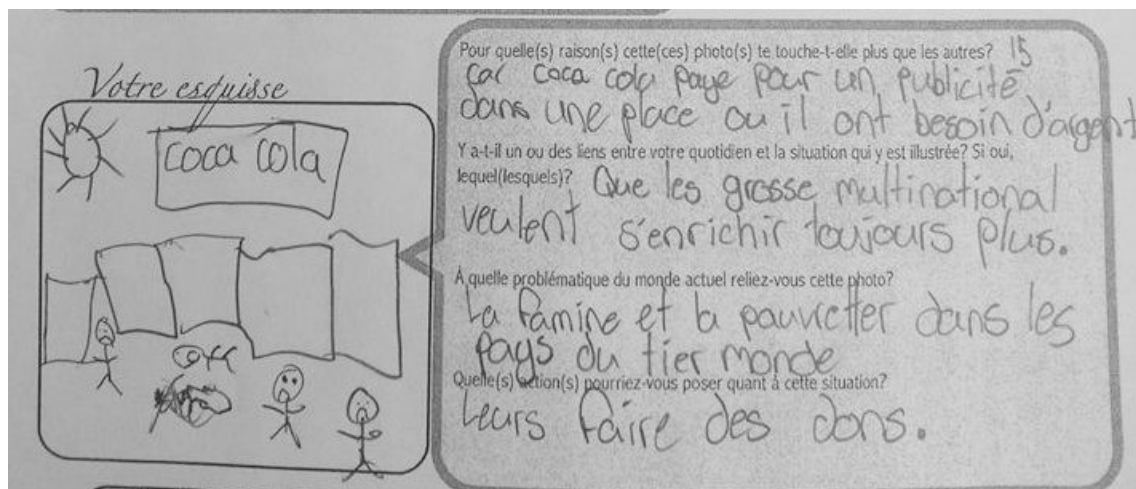 Votre esquisse
coca cola
Pour quelle(s) raison(s) cette(ces) photo(s) te touche-t-elle plus que les autres? 15
car coca cola paye pour un publicité
dans une place ou il ont besoin d'argent
Y a-t-il un ou des liens entre votre quotidien et la situation qui y est illustrée? Si oui,
lequel(lesquels)? Que les grosse multinational
veulent s'enrichir toujours plus.
À quelle problématique du monde actuel reliez-vous cette photo?
La famine et la pauvretter dans les
pays du tier monde
Quelle(s) action(s) pourriez-vous poser quant à cette situation?
Leurs faire des dons.